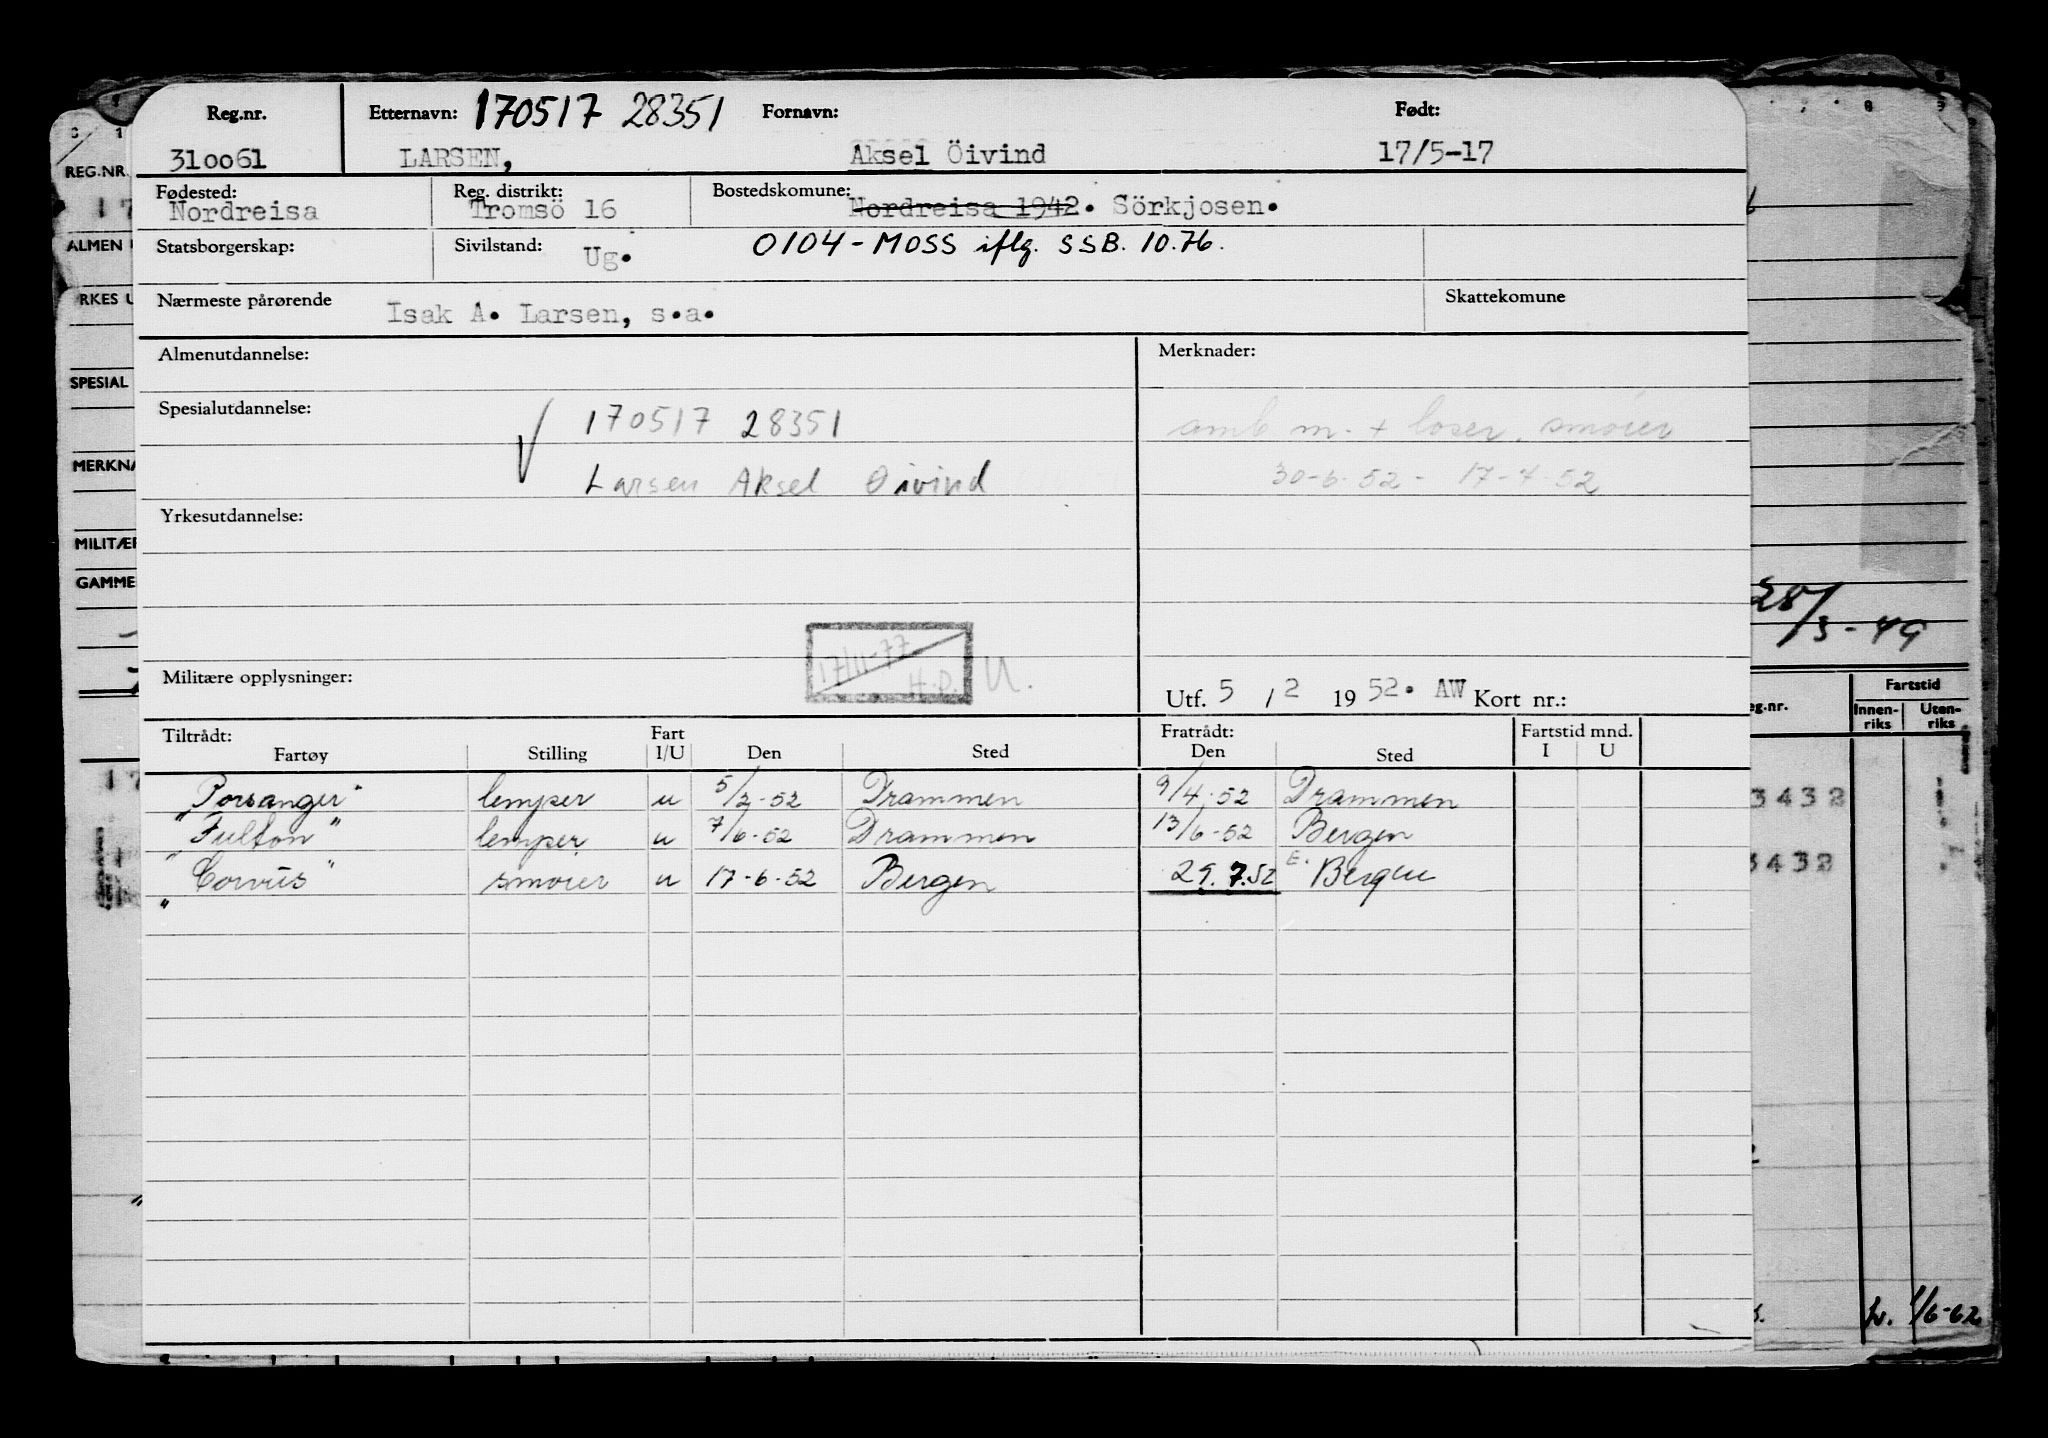 Reg.nr. Etternavn: 170517 28351 Fornavn: Født:
310061 LARSEN, Aksel Öivind 17/5-17
Fødested: Reg. distrikt: Bostedskomune:
Nordreisa Tromsö 16 Nordreisa 1942. Sörkjosen.
Statsborgerskap: Sivilstand: Ug. 0104 - MOSS iflg. SSB. 10.76.
Nærmeste pårørende Isak A. Larsen, s.a. Skattekomune
Almenutdannelse: Merknader:
Spesialutdannelse: 170517 28351 amb. m. + loser. smører
Larsen Aksel Øivind 30-6-52 - 17-7-52
Yrkesutdannelse:
17/11-77
H.P. U.
Militære opplysninger: Utf. 5 / 2 1952. AW Kort nr.:
Tiltrådt: Fart Fratrådt: Fartstid mnd.
Fartøy Stilling I/U Den Sted Den Sted I U
"Porsanger" lemper u 5/2-52 Drammen 9/4-52 Drammen
"Fulton" lemper u 7/6-52 Drammen 13/6-52 Bergen
"Corvus" smører u 17-6-52 Bergen 29.7.52 E. Bergen
"
REG.NR.
17
ALMEN
RKES U
SPESIAL
MERKNA
MILITÆR
GAMME
28/3-49
eg.nr. Fartstid
Innen-riks Uten-riks
3432
3432
1/6-62